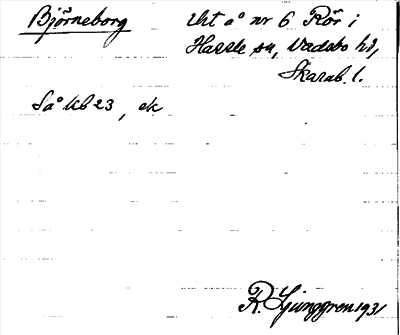 Björneborg
lht å nr 6 Rör i
Hassle sn, Vadsbo hd,
Skarab. l.
Så kb 23, ek
R. Ljunggren 1931